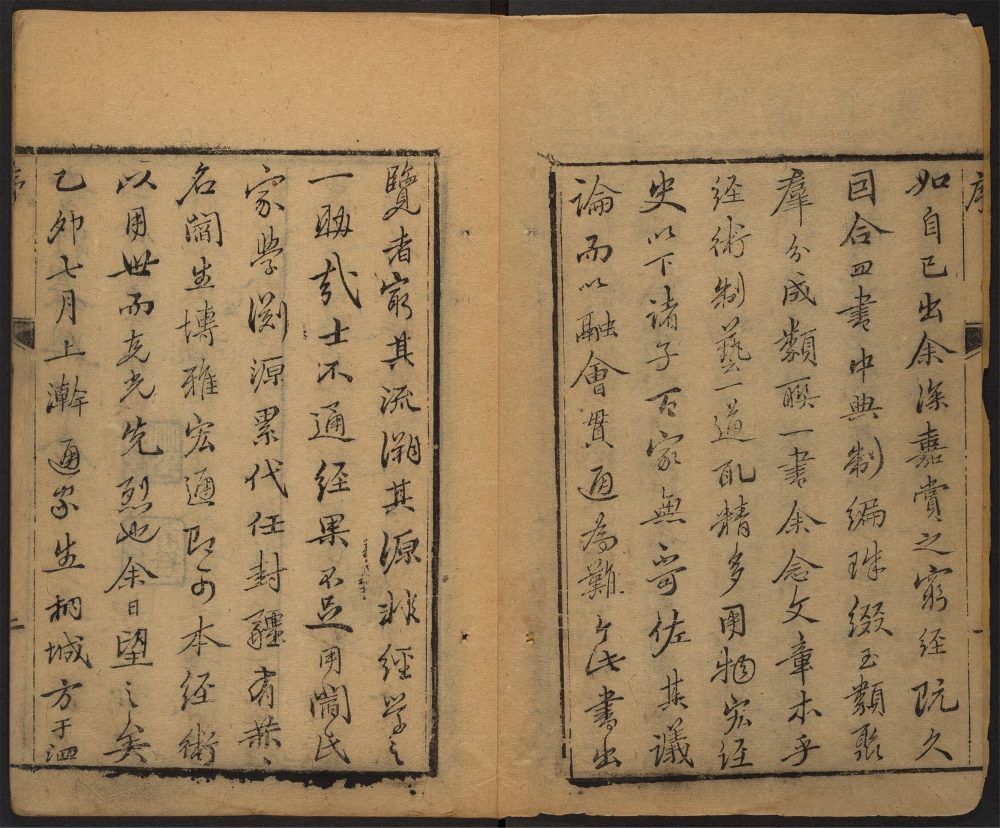 序
如自己出余深嘉賞之窮経既久
囙合四書中典制編珠綴玉類聚
羣分成類聯一書余念文章本乎
経術制藝一道取精多用物宏経
史以下諸子百家無可佐其議
論而以融會貫通為難今此書出
覽者窮其流溯其源於經学之
一助哉士不通経果不足用閻氏
家学渕源累代任封疆有
名閻生博雅宏通即可本経術
以用世而克光先烈也余日望之矣
乙卯七月上澣通家生桐城方于泗